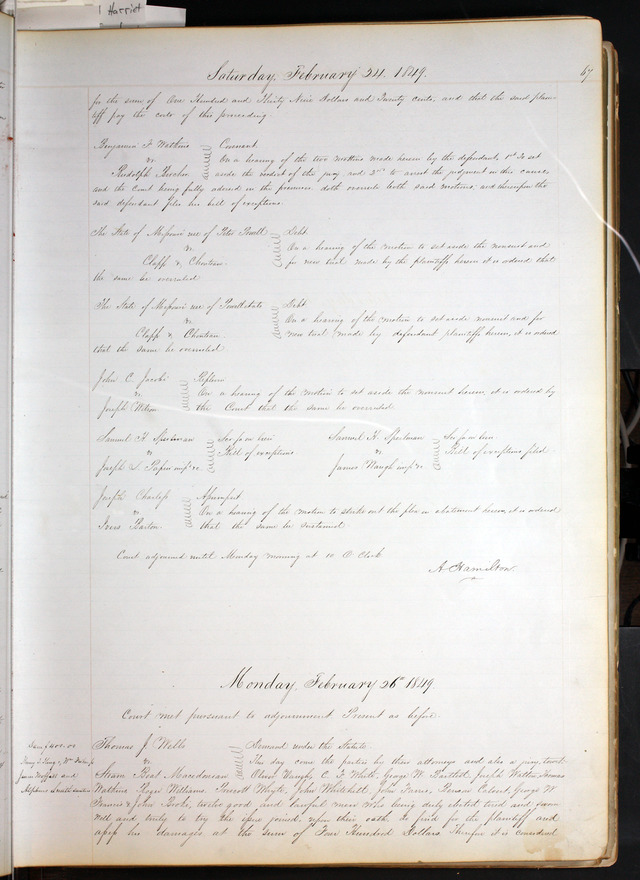 1 Harriet
Saturday, February 24. 1849.
67
for the sum of One Hundred and Thirty Nine Dollars and Twenty cents, and that the said plain-
tiff pay the costs of this proceeding
Benjamin F Watkins Covenant
vs On a hearing of the two motions made herein by the defendant, 1st to set
Rudolph aside the verdict of the jury and 2nd to arrest the judgment in this cause,
and the Court being fully advised in the premises doth overrule both said motions, and thereupon the
said defendant files his bill of exceptions.
The State of Missouri use of Peter Powell Debt
vs On a hearing of the motion to set aside the nonsuit and
Clapp & Chouteau for new trial made by the plaintiffs herein it is ordered that
the same be overruled
The State of Missouri use of Debt
vs On a hearing of the motion to set aside nonsuit and for
Clapp & Chouteau new trial made by defendant plaintiffs herein, it is ordered
that the same be overruled
John C. Jacobi Replevin
vs On a hearing of the motion to set aside the nonsuit herein, it is ordered by
Joseph Wilson the Court that the same be overruled
Samuel H Spelman
vs Bill of exceptions
Joseph S
Samuel H. Spelman
vs Bill of exceptions filed
James Waugh
Joseph Charless Assumpsit
vs On a hearing of the motion to strike out the plea in abatement herein, it is ordered
Barton that the same be sustained
Court adjourned until Monday morning at 10 O Clock
A Hamilton
Monday, February 26th 1849.
Court met pursuant to adjournment Present as before.
Thomas J. Wells Demand under the Statute
vs This day come the parties by their attorneys and also a jury, to wit
Steam Boat Macedonian C. F. White, George W Bartlett, Joseph
Watkins Roger Williams, Whyte, John Whitehill, John George W
& John twelve good and lawful men who being duly elected tried and sworn
well and truly to try the issue joined, upon their oath do find for the plaintiff and
assess his damages at the sum of Four Hundred Dollars Therefore it is considered